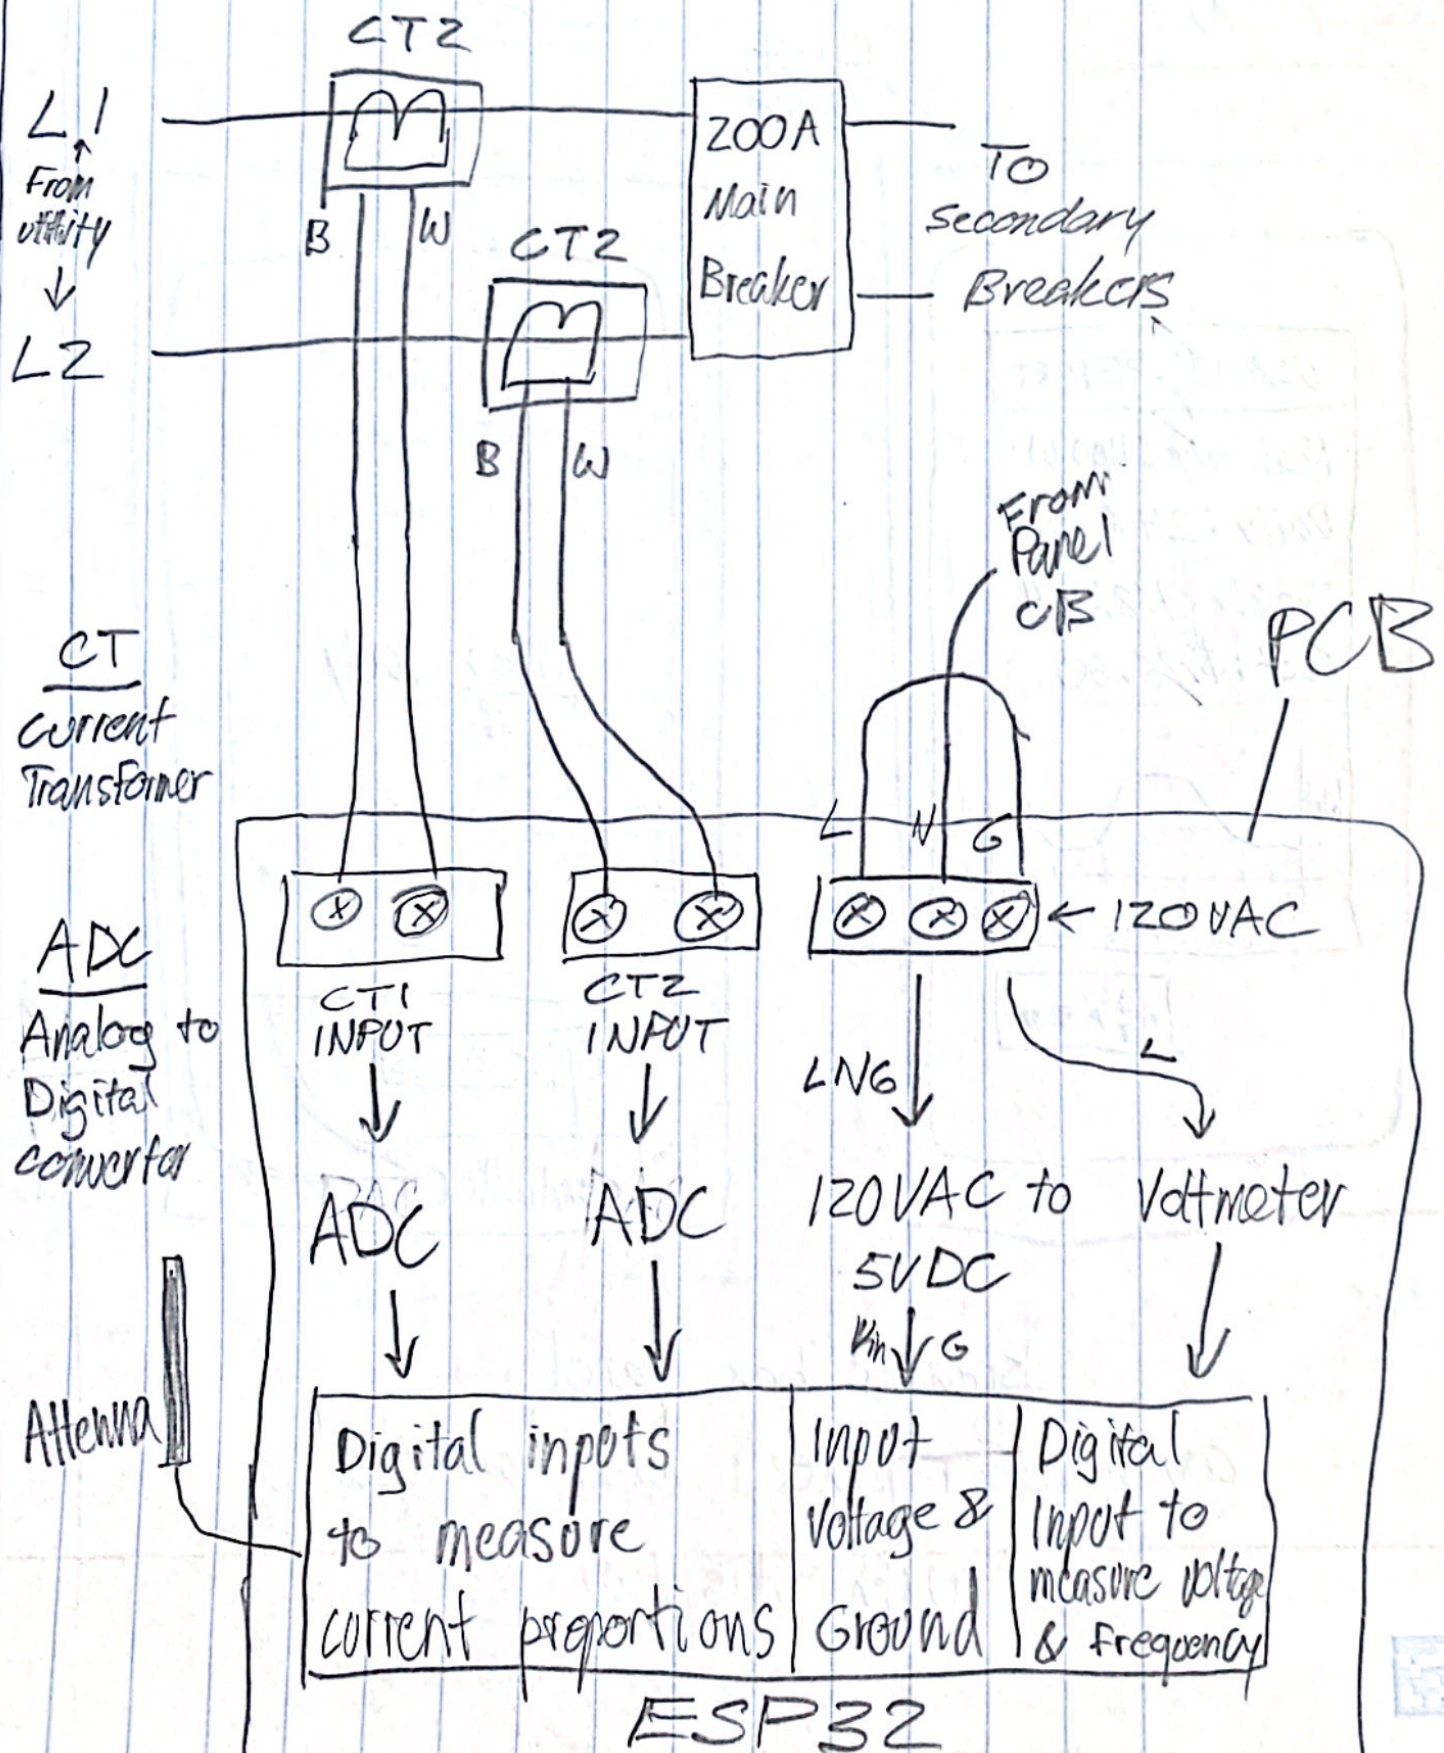 CT2
L1
From
utility
L2
B
W
CT2
B
W
200A
Main
Breaker
To
Secondary
Breakers
From
Panel
CB
PCB
CT
Current
Transformer
L
N
G
← 120VAC
CT1
INPUT
CT2
INPUT
LNG
L
ADC
Analog to
Digital
convertor
ADC
ADC
120VAC to
5VDC
Voltmeter
Vin
G
Attenna
Digital inputs
to measure
current proportions
Input
Voltage &
Ground
Digital
Input to
measure voltage
& Frequency
ESP32